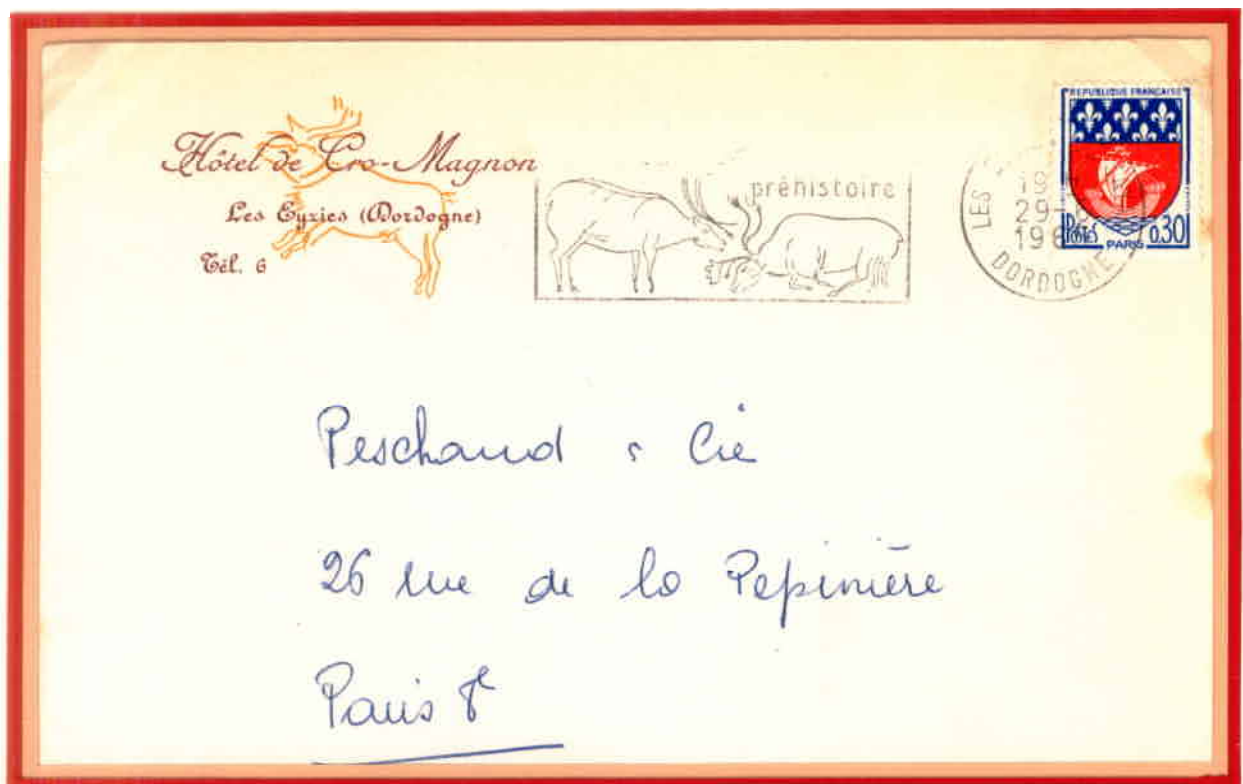 Hôtel de Cro-Magnon
Les Eyzies (Dordogne)
Tél. 6
préhistoire
LES
DORDOGNE
REPUBLIQUE FRANÇAISE
0.30
PARIS
Peschaud & Cie
26 rue de la Pepinière
Paris 8e